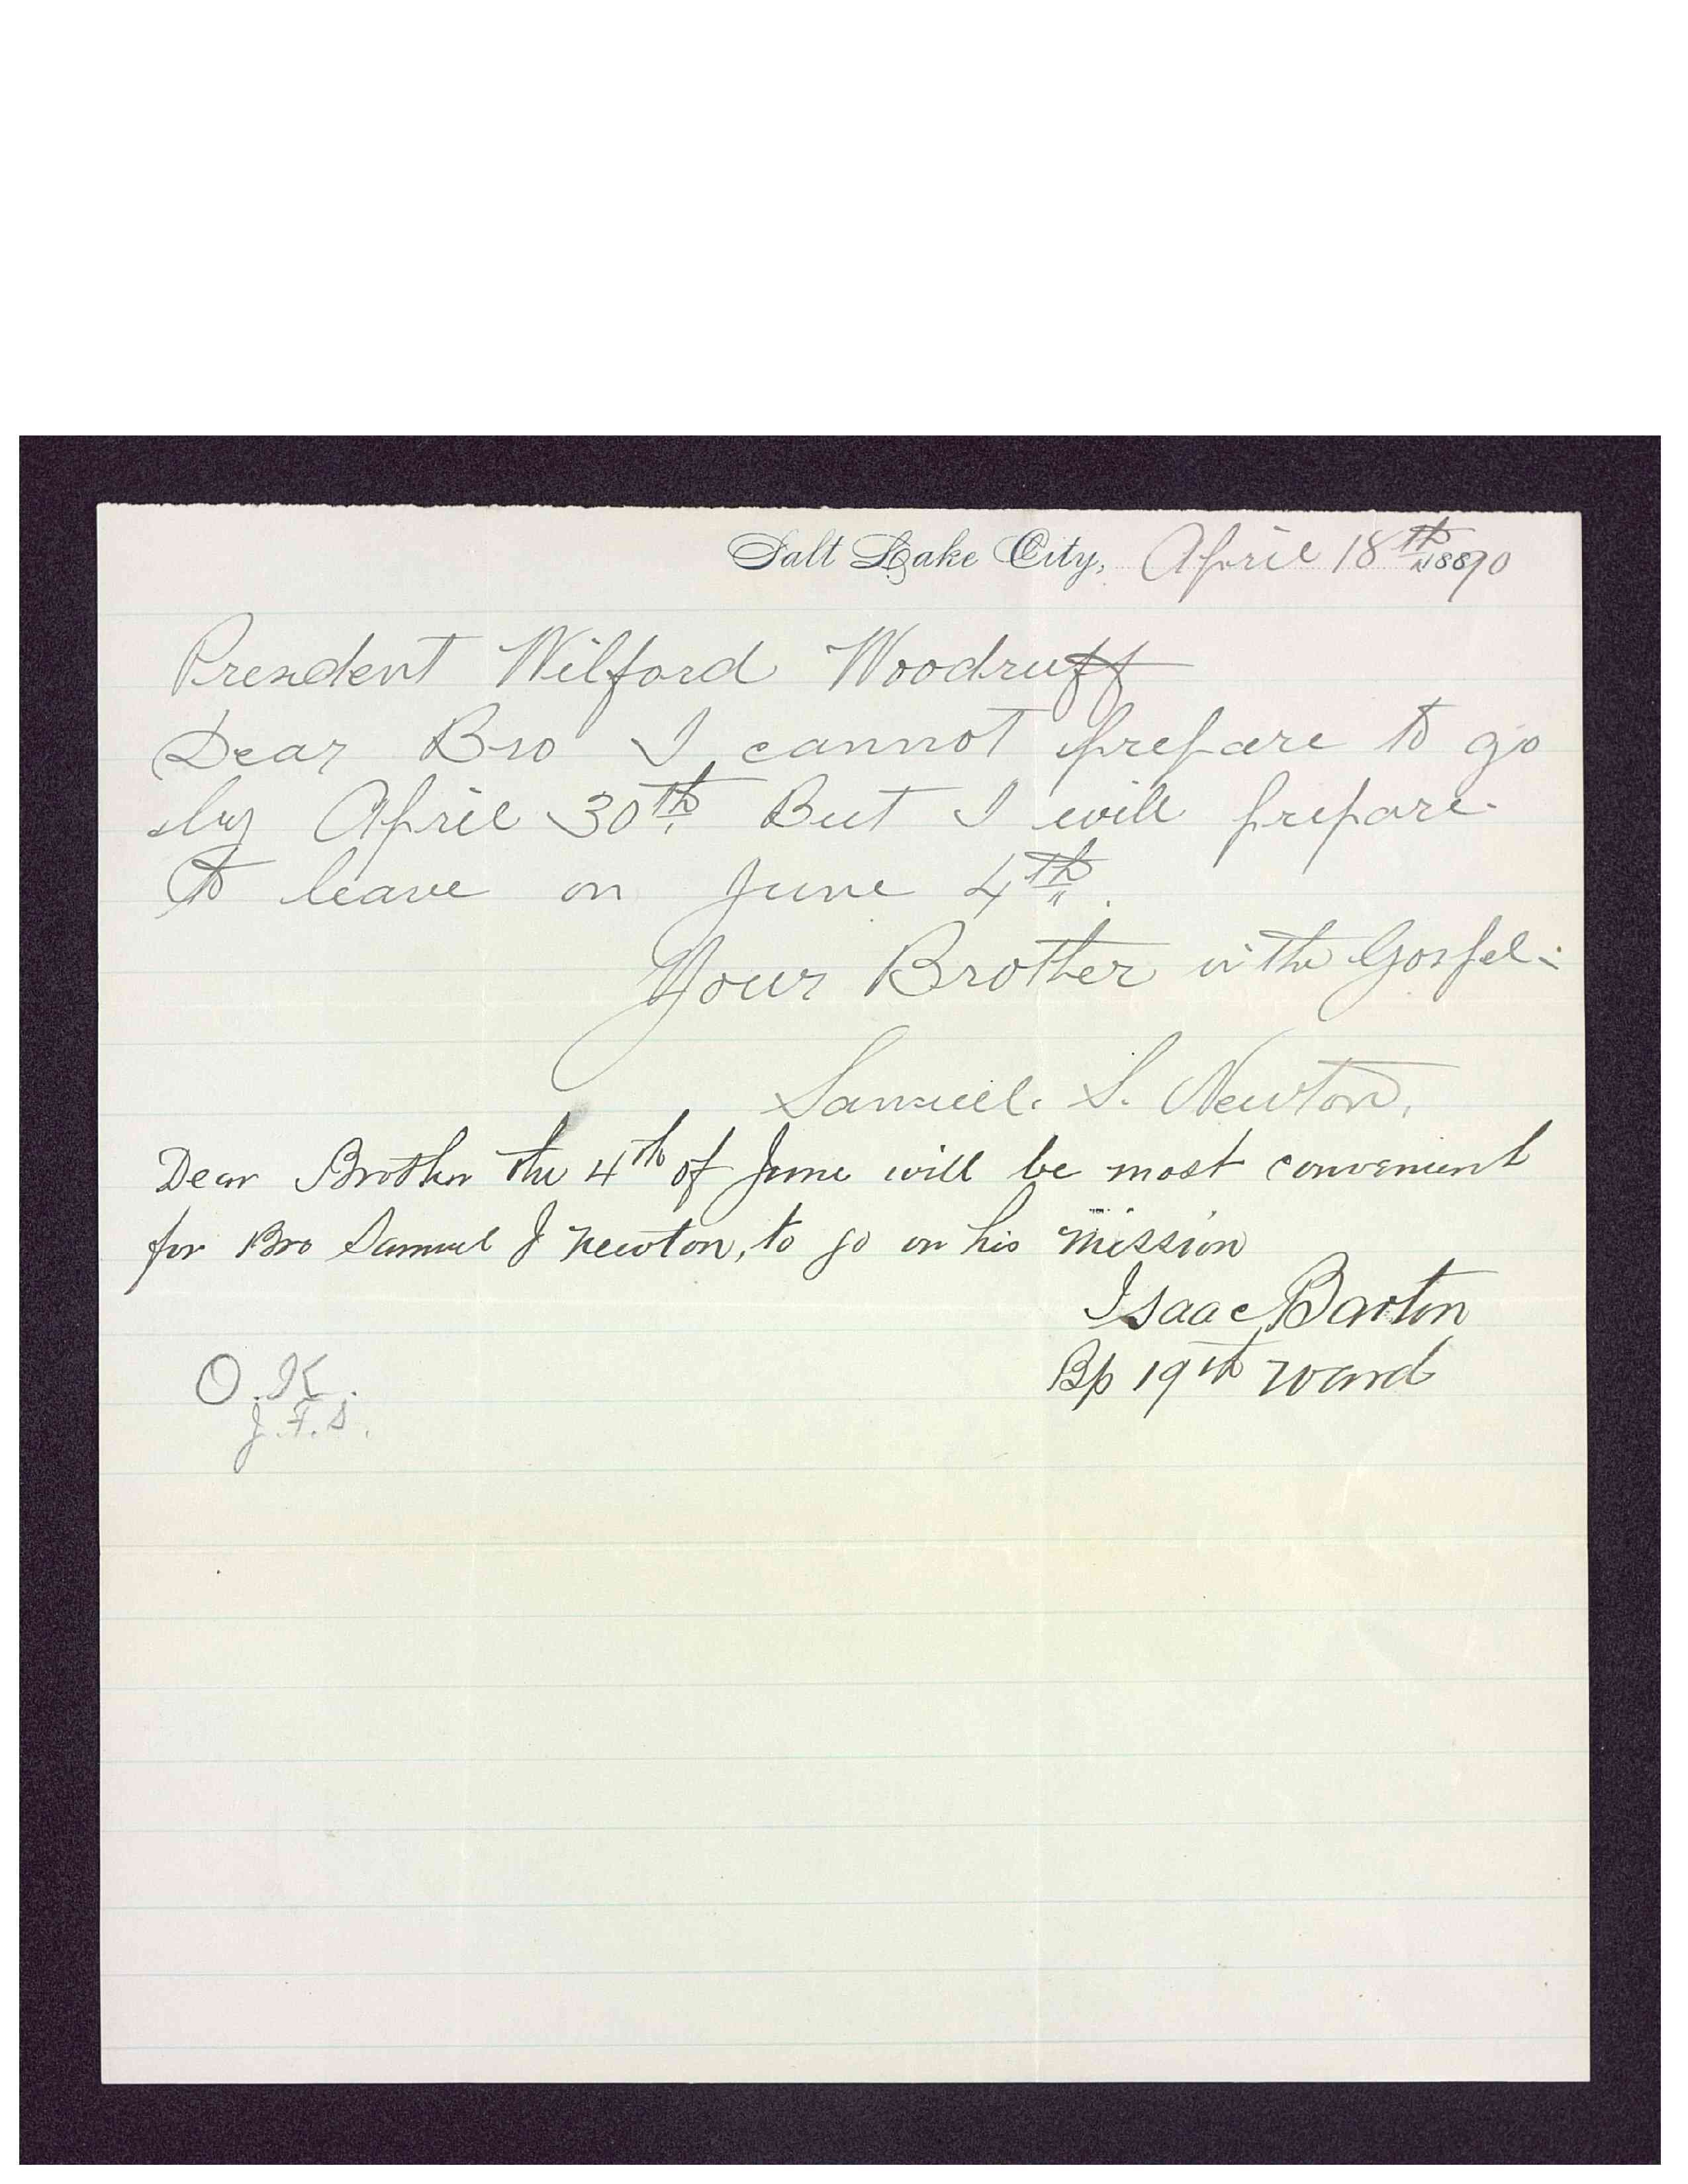 Salt Lake City, April 18th 18890
President Wilford Woodruff
Dear Bro I cannot prepare to go
by April 30th But I will prepare
to leave on June 4th.
Your Brother in the Gospel:
Samuel. S. Newton.
Dear Brother the 4th of June will be most convenient
for Bro Samuel J Newton, to go on his mission
Isaac Barton
Bp 19th Ward
O.K.
J.F.S.